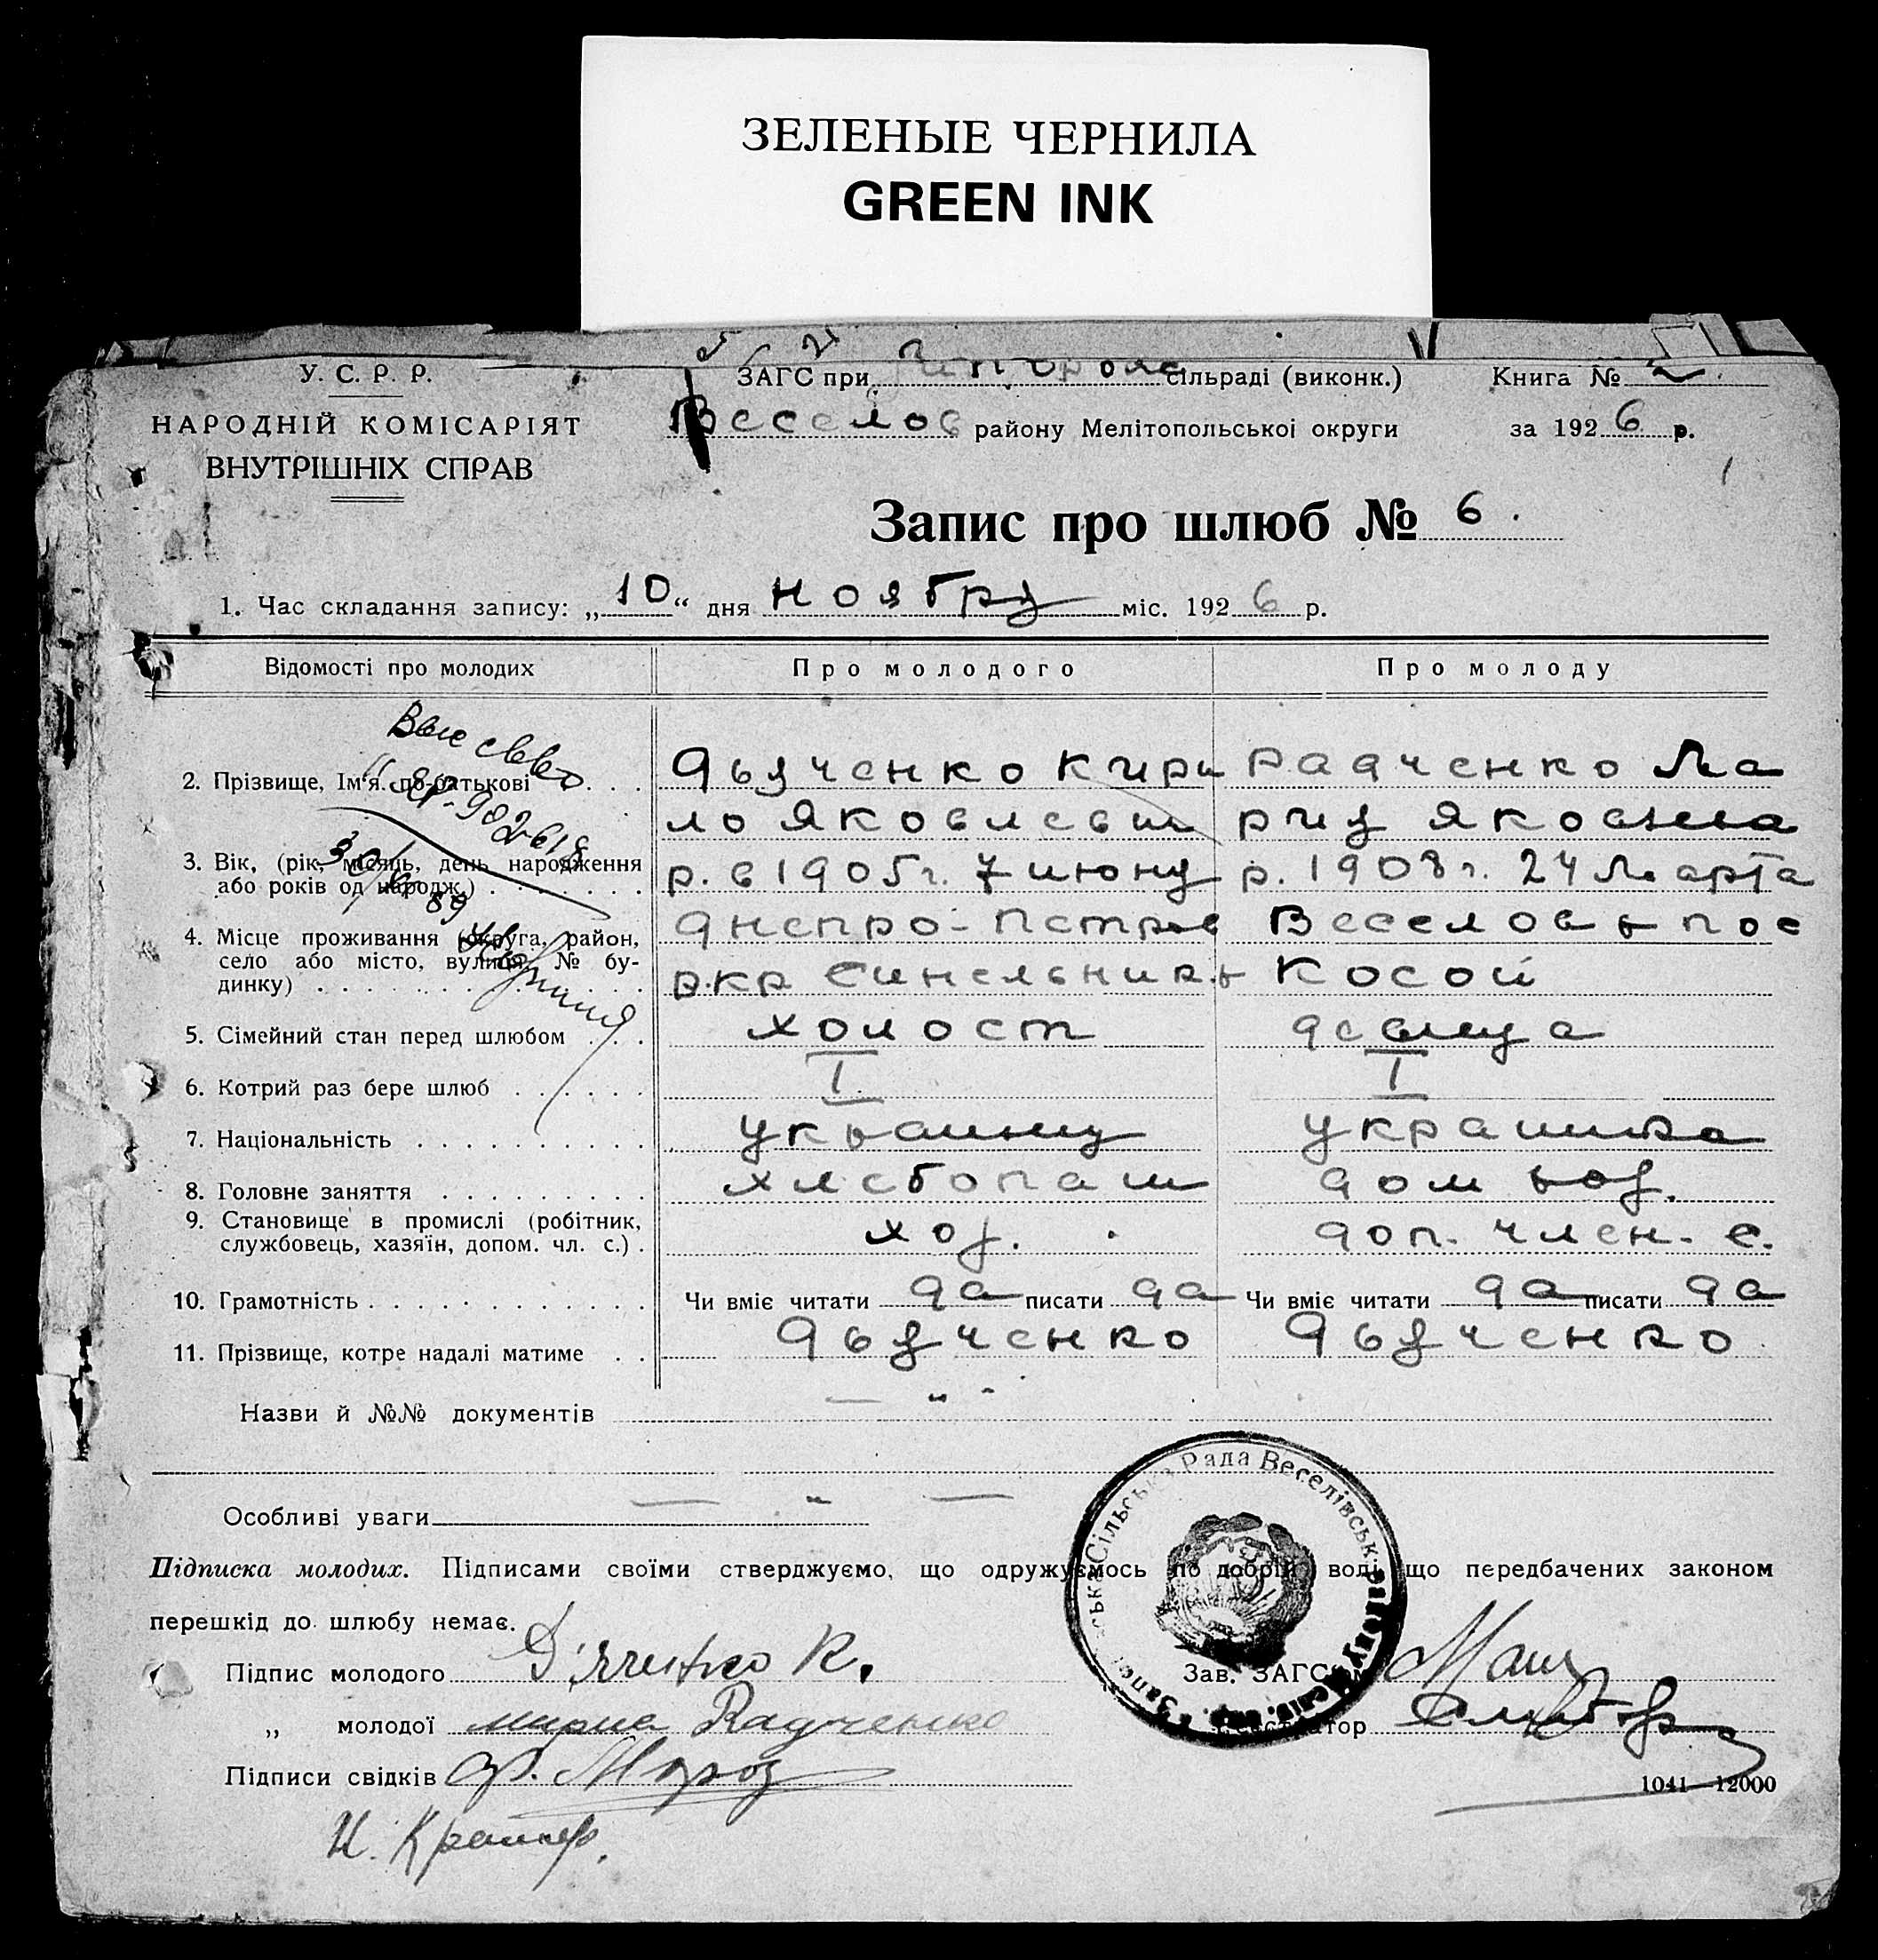 ЗЕЛЕНЫЕ ЧЕРНИЛА
GREEN INK
У. С. Р. Р.
НАРОДНІЙ КОМІСАРІЯТ
ВНУТРІШНІХ СПРАВ
ЗАГС при сільраді (виконк.)
Веселов району Мелітопольської округи
Книга № 2
за 1926 р.
Запис про шлюб № 6.
1. Час складання запису: „10“ дня ноября міс. 1926 р.
Відомості про молодих
Про молодого
Про молоду
2. Прізвище, Ім'я. по-батькові . . .
Дьяченко Кири
Радченко Ма
ло Яковлевич
рия Яковлевна
3. Вік, (рік, місяць, день народження
або років од народж.) . . . . . . .
р. в 1905 г. 7 июня
р. 1908 г. 24 Марта
4. Місце проживання (округа, район,
село або місто, вулиця, № бу-
динку) . . . . . . . . . . . . .
Днепро-Петров
Веселов р пос
окр Синельник р
Косой
5. Сімейний стан перед шлюбом . . .
холост
девица
6. Котрий раз бере шлюб . . . . . .
I
I
7. Національність . . . . . . . . . .
украинец
украинка
8. Головне заняття . . . . . . . . .
хлебопаш
дом хоз.
9. Становище в промислі (робітник,
службовець, хазяїн, допом. чл. с.) .
хоз.
доп. член. с.
10. Грамотність . . . . . . . . . . . .
Чи вміє читати да писати да
Чи вміє читати да писати да
11. Прізвище, котре надалі матиме . .
Дьяченко
Дьяченко
Назви й №№ документів — „ -
Особливі уваги — „ —
Підписка молодих. Підписами своїми стверджуємо, що одружуємось по добрій волі, що передбачених законом
перешкід до шлюбу немає.
Підпис молодого Д'яченко К.
„ молодої Мария Радченко
Підписи свідків Ф. Мороз
Зав. ЗАГСом
Реєстратор
1041—12000
Сільська Рада Веселівськ.